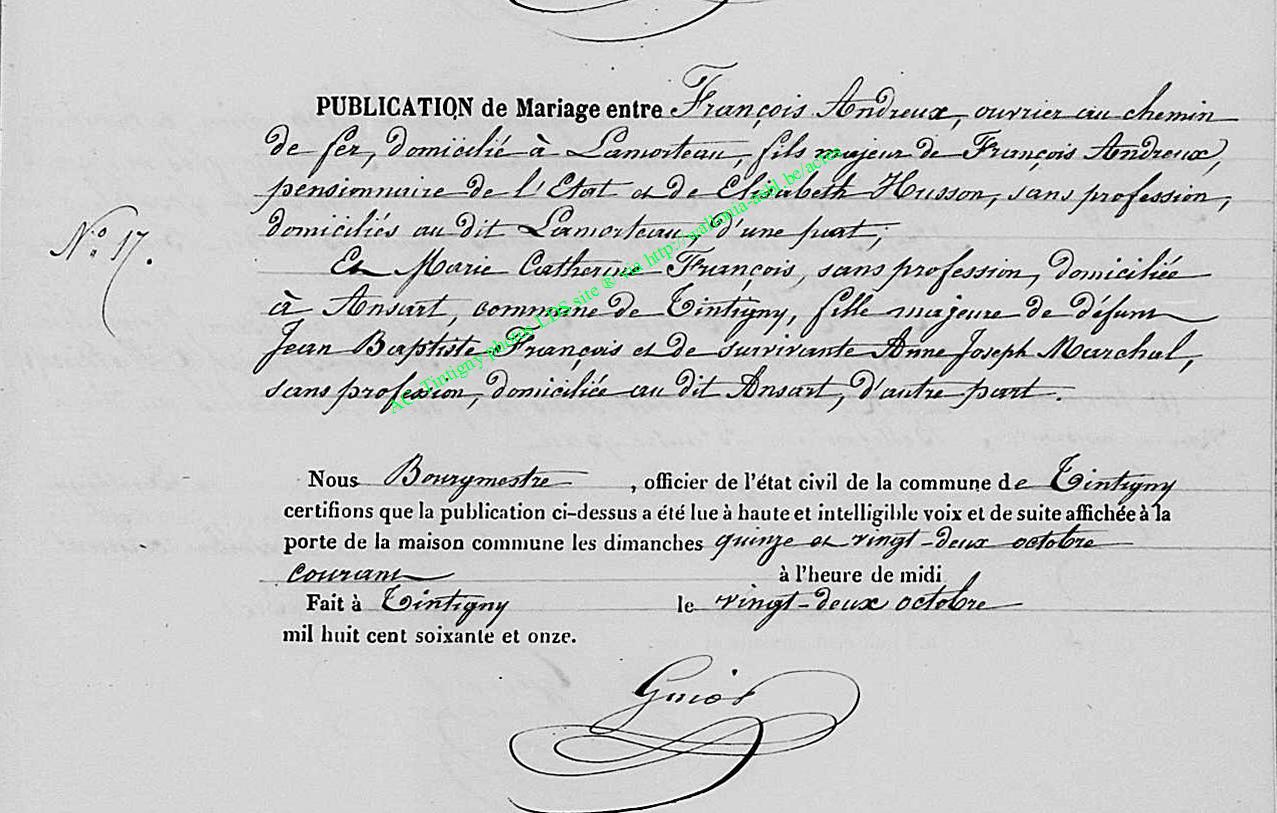 PUBLICATION de Mariage entre François Andreux, ouvrier au chemin
de fer, domicilié à Lamorteau, fils majeur de François Andreux,
pensionnaire de l'Etat et de Elisabeth Husson, sans profession,
domiciliés au dit Lamorteau, d'une part;
N.o 17.
Et Marie Catherine François, sans profession, domiciliée
à Ansart, commune de Tintigny, fille majeure de défunt
Jean Baptiste François et de survivante Anne Joseph Marchal,
sans profession, domiciliée au dit Ansart, d'autre part.
AC Tintigny photos LDS site ® via http://wallonia-asbl.be/actes
Nous Bourgmestre, officier de l'état civil de la commune de Tintigny
certifions que la publication ci-dessus a été lue à haute et intelligible voix et de suite affichée à la
porte de la maison commune les dimanches quinze et vingt-deux octobre
courant à l'heure de midi
Fait à Tintigny le vingt-deux octobre
mil huit cent soixante et onze.